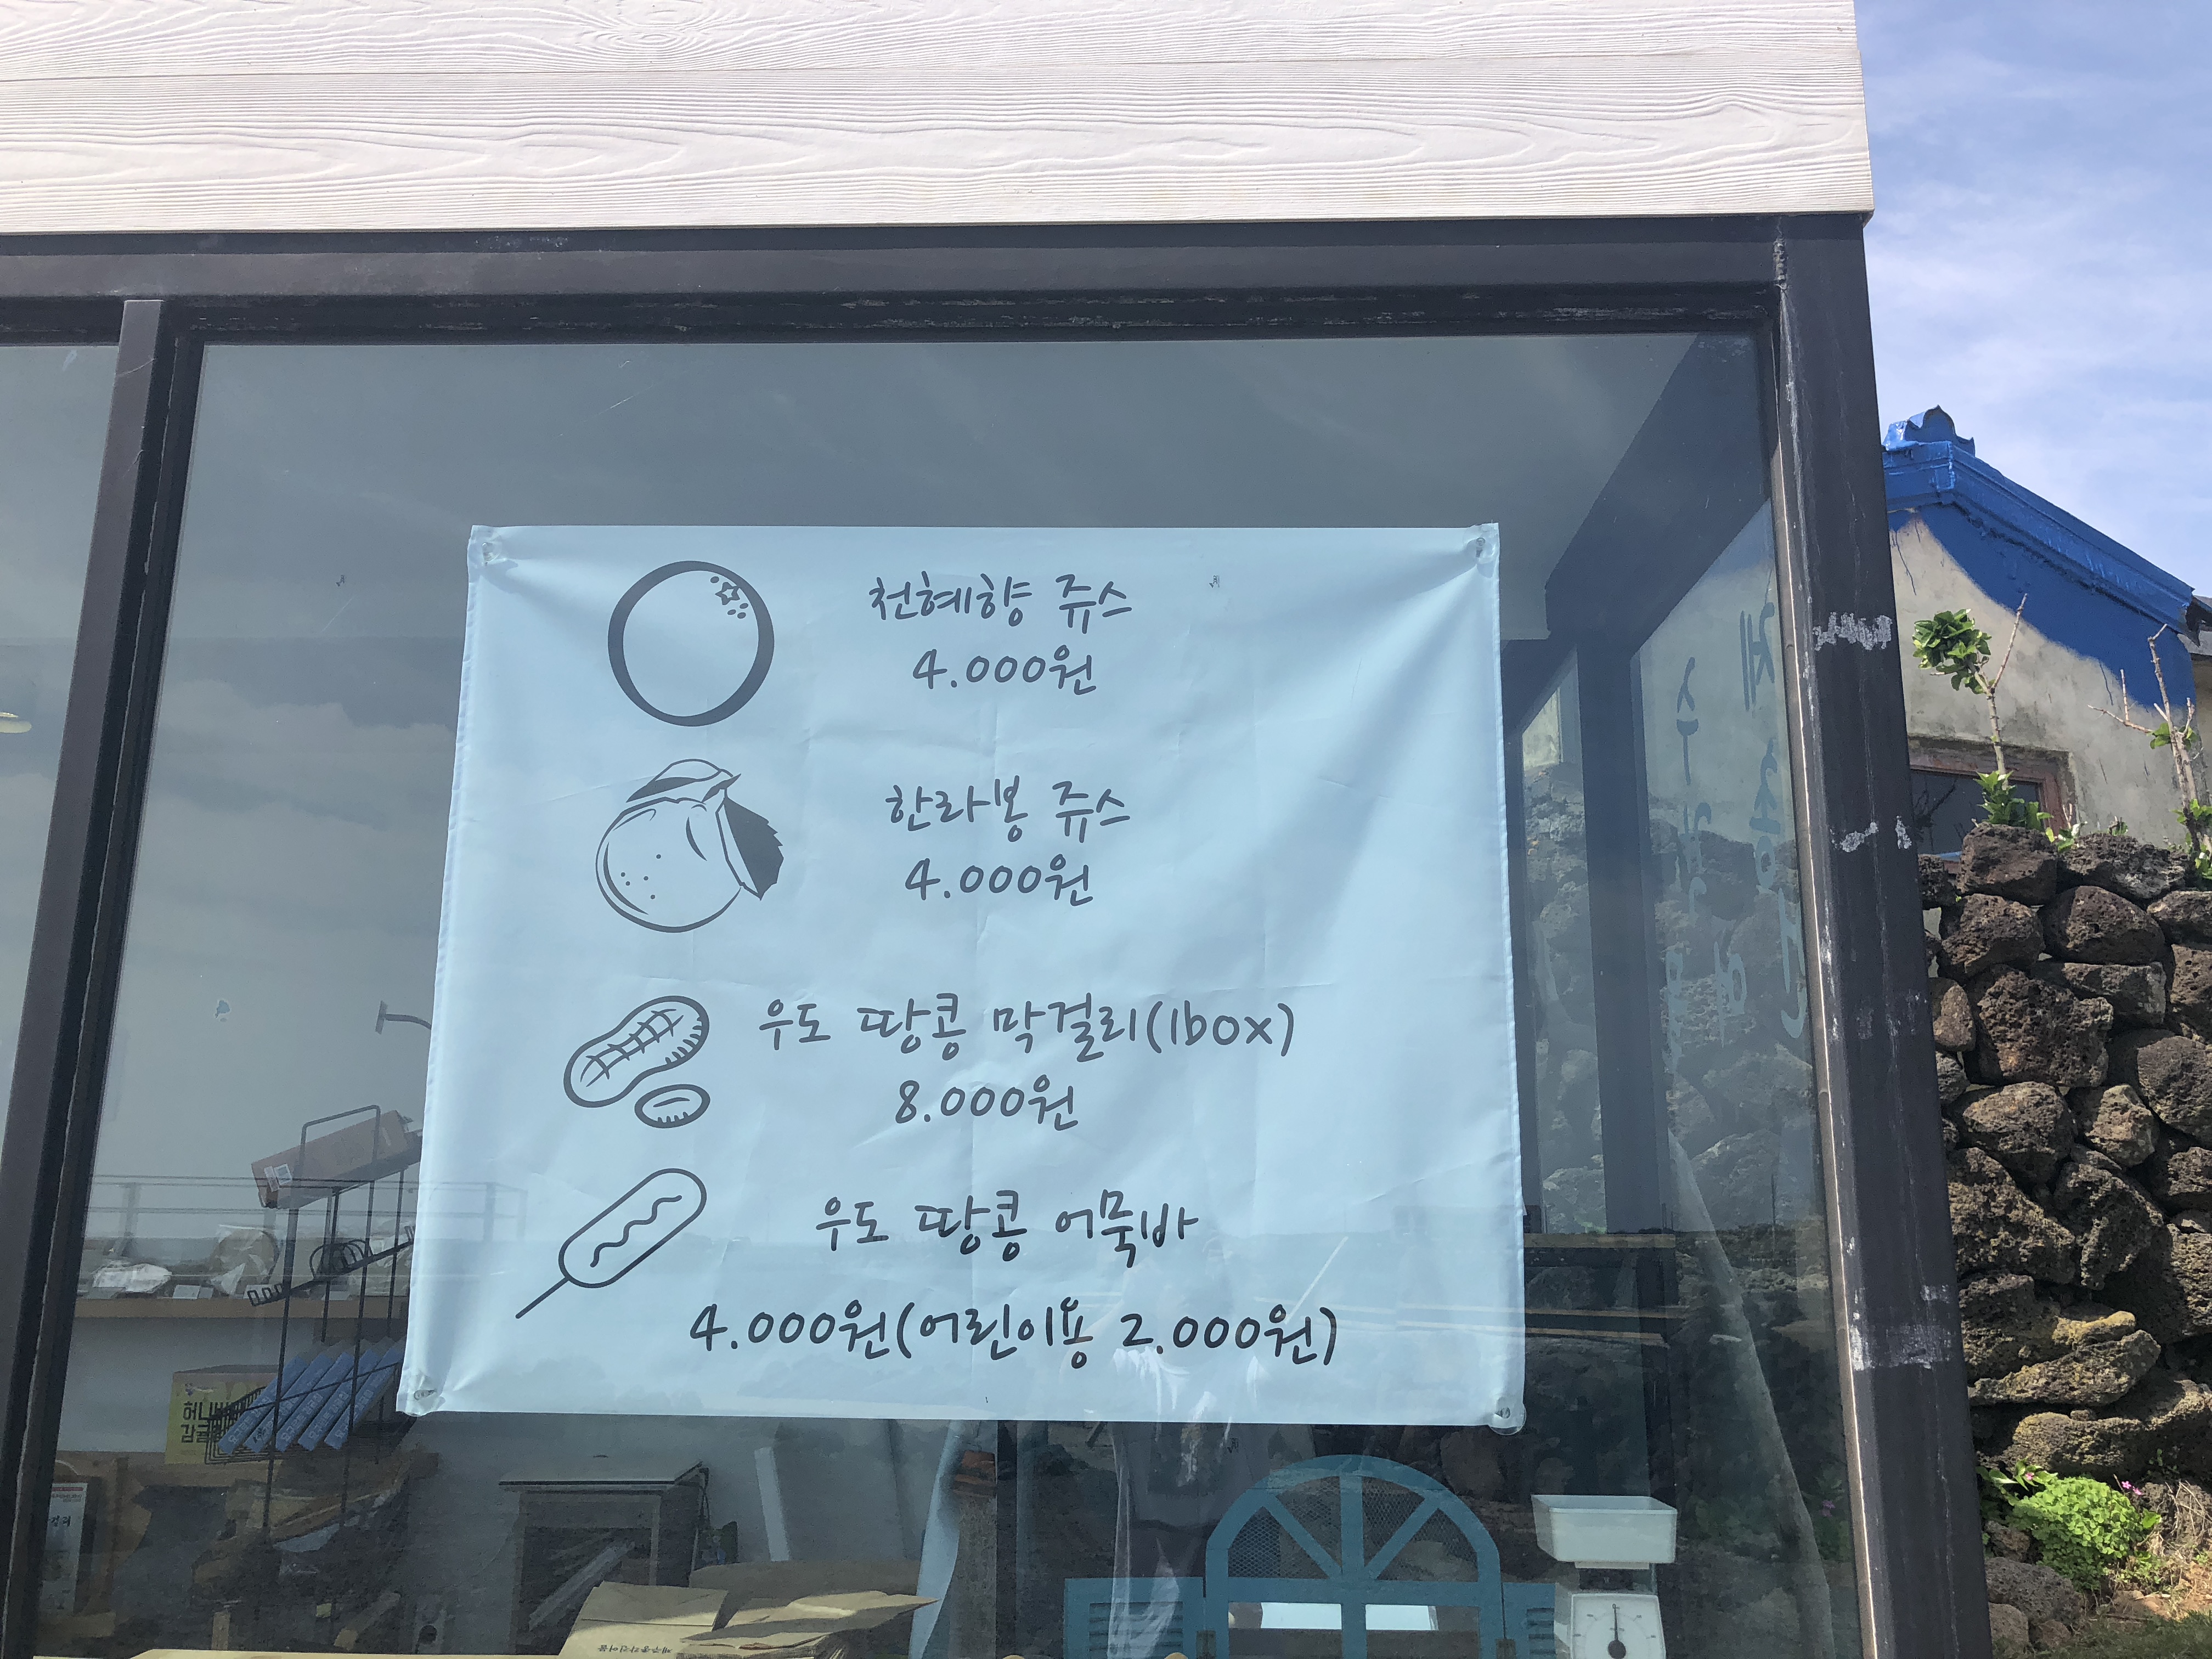 천혜향 쥬스
4.000원
한라봉 쥬스
4.000원
우도 땅콩 막걸리(1box)
8.000원
우도 땅콩 어묵바
4.000원(어린이용 2.000원)